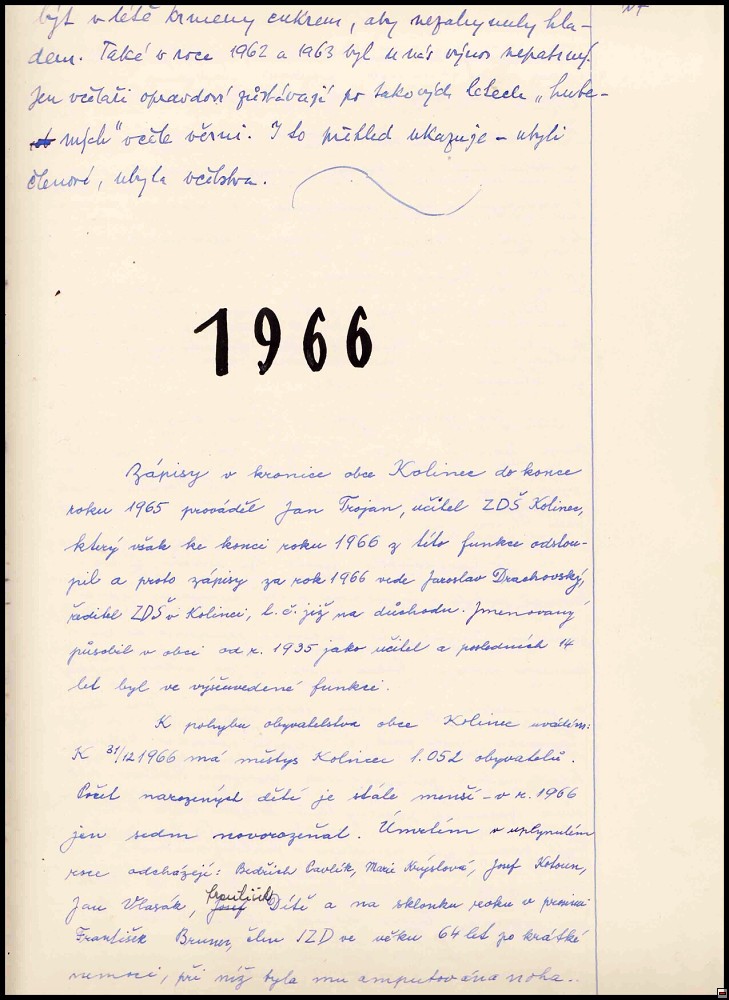 být v létě krmeny cukrem, aby nezahynuly hla-
dem. Také v roce 1962 a 1963 byl u nás výnos nepatrný.
Jen včelaři opravdoví zůstávají po takových letech „hube-
ných" včele věrni. I to přehled ukazuje – ubyli
členové, ubyla včelstva.
1966
Zápisy v kronice obce Kolinec do konce
roku 1965 prováděl Jan Trojan, učitel ZDŠ Kolinec,
který však ke konci roku 1966 z této funkce odstou-
pil a proto zápisy za rok 1966 vede Jaroslav Drachovský,
ředitel ZDŠ v Kolinci, t. č. již na důchodu. Jmenovaný
působil v obci od r. 1935 jako učitel a posledních 14
let byl ve výšeuvedené funkci.
K pohybu obyvatelstva obce Kolinec uvádím:
K 31/12 1966 má městys Kolinec 1.052 obyvatelů.
Počet narozených dětí je stále menší – v r. 1966
jen sedm novorozeňat. Úmrtím v uplynulém
roce odcházejí: Bedřich Pavlík, Marie Krýslová, Josef Kotoun,
Jan Vlasák, František Dítě a na sklonku roku v prosinci
František Bruner, člen JZD ve věku 64 let po krátké
nemoci, při níž byla mu amputována noha..